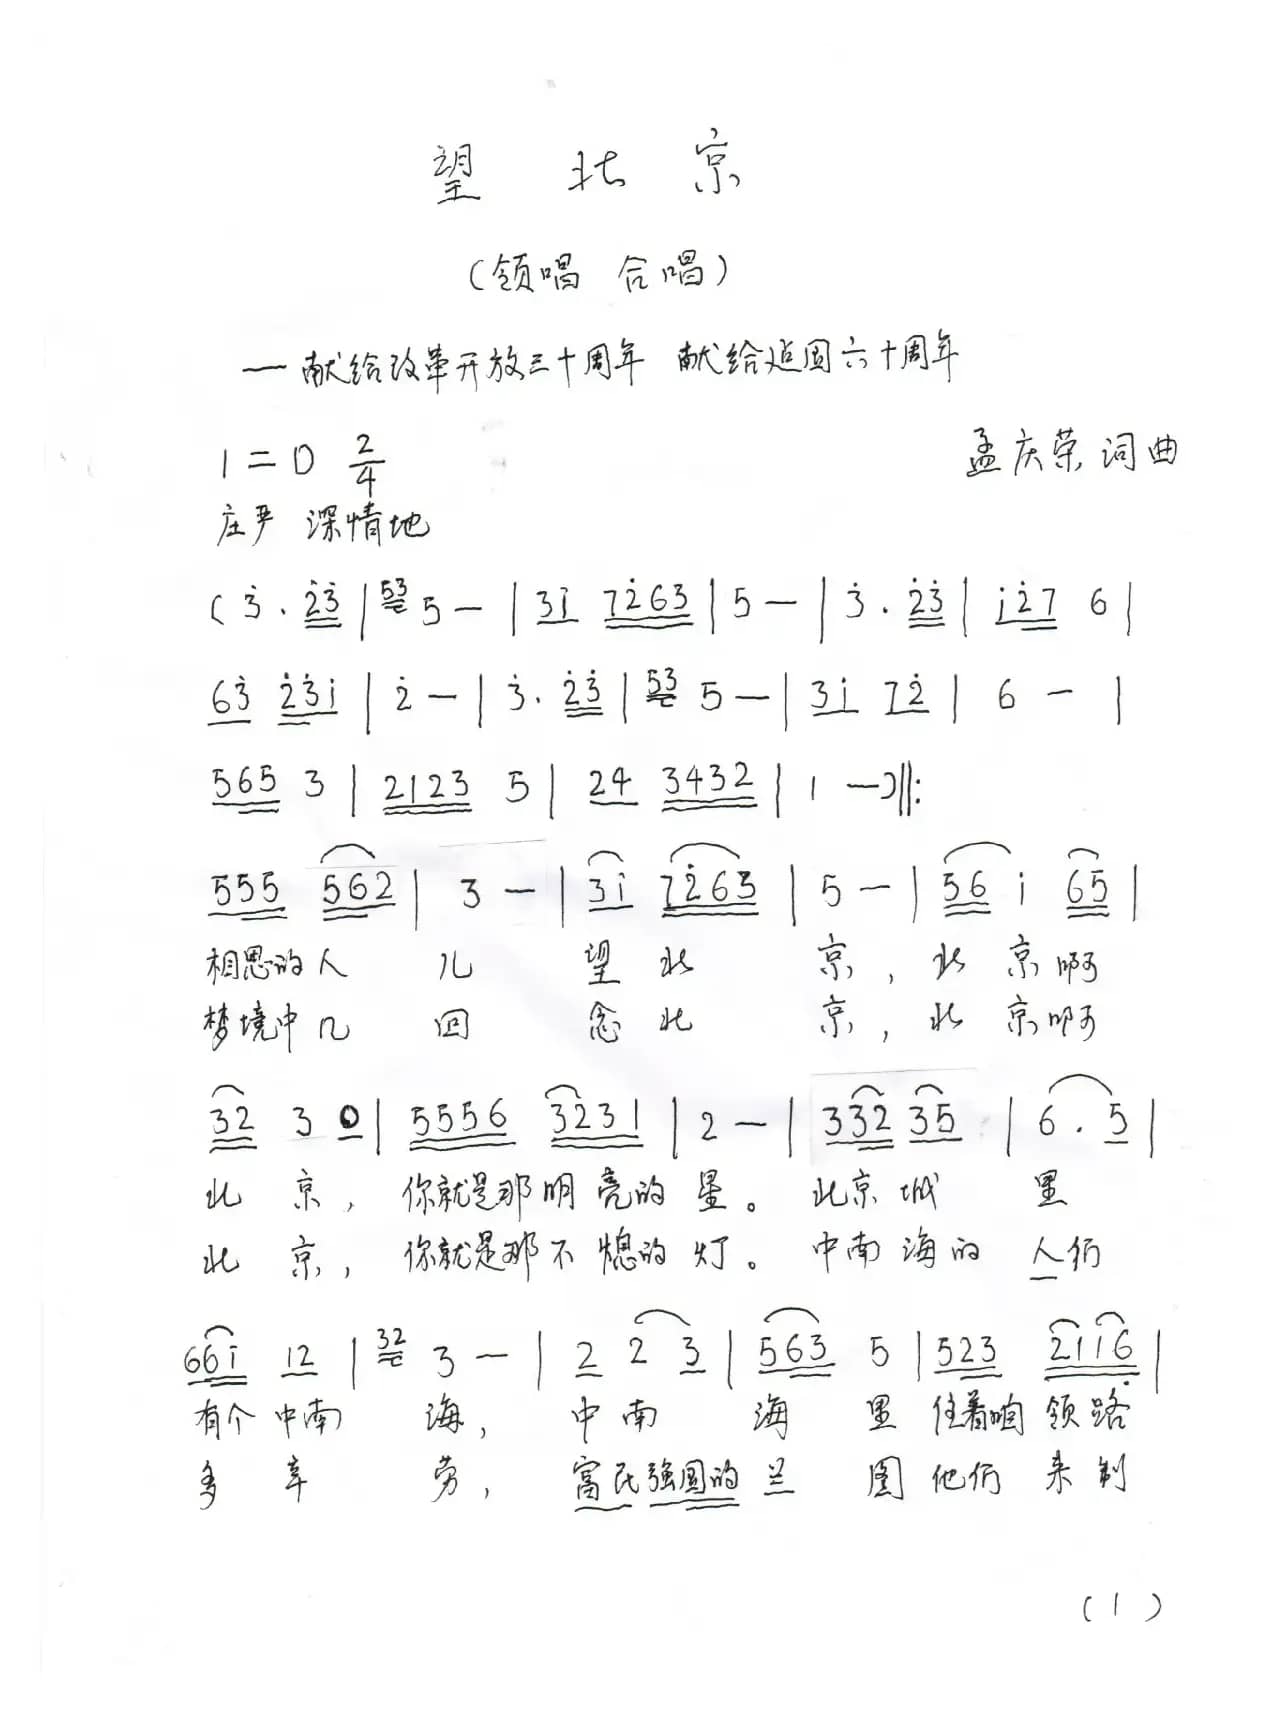 望 北 京
（领唱 合唱）
—献给改革开放三十周年 献给建国六十周年
1=D 2/4
孟庆荣 词曲
庄严 深情地
( 3̇ . 2̇3̇ | 53 5 — | 31̇ 72̇63 | 5 — | 3̇ . 2̇3̇ | 1̇2̇7 6 |
63̇ 2̇3̇1̇ | 2̇ — | 3̇ . 2̇3̇ | 53 5 — | 31̇ 72̇ | 6 — |
565 3 | 2123 5 | 24 3432 | 1 — ) ‖:
555 562 | 3 — | 31̇ 72̇63 | 5 — | 56 1̇ 65 |
相思的人 儿 望 北 京，北 京啊
梦境中几 回 念 北 京，北 京啊
32 3 0 | 5556 3231 | 2 — | 332 35 | 6 . 5 |
北 京，你就是那明 亮的 星。北京 城 里
北 京，你就是那不 熄的 灯。中南 海的 人们
661̇ 12 | 32 3 — | 2 2 3 | 563 5 | 523 2116̣ |
有个 中南 海，中 南 海 里 住着咱 领 路
多 辛 劳，富民强国的 兰 图 他们 来 制
（1）